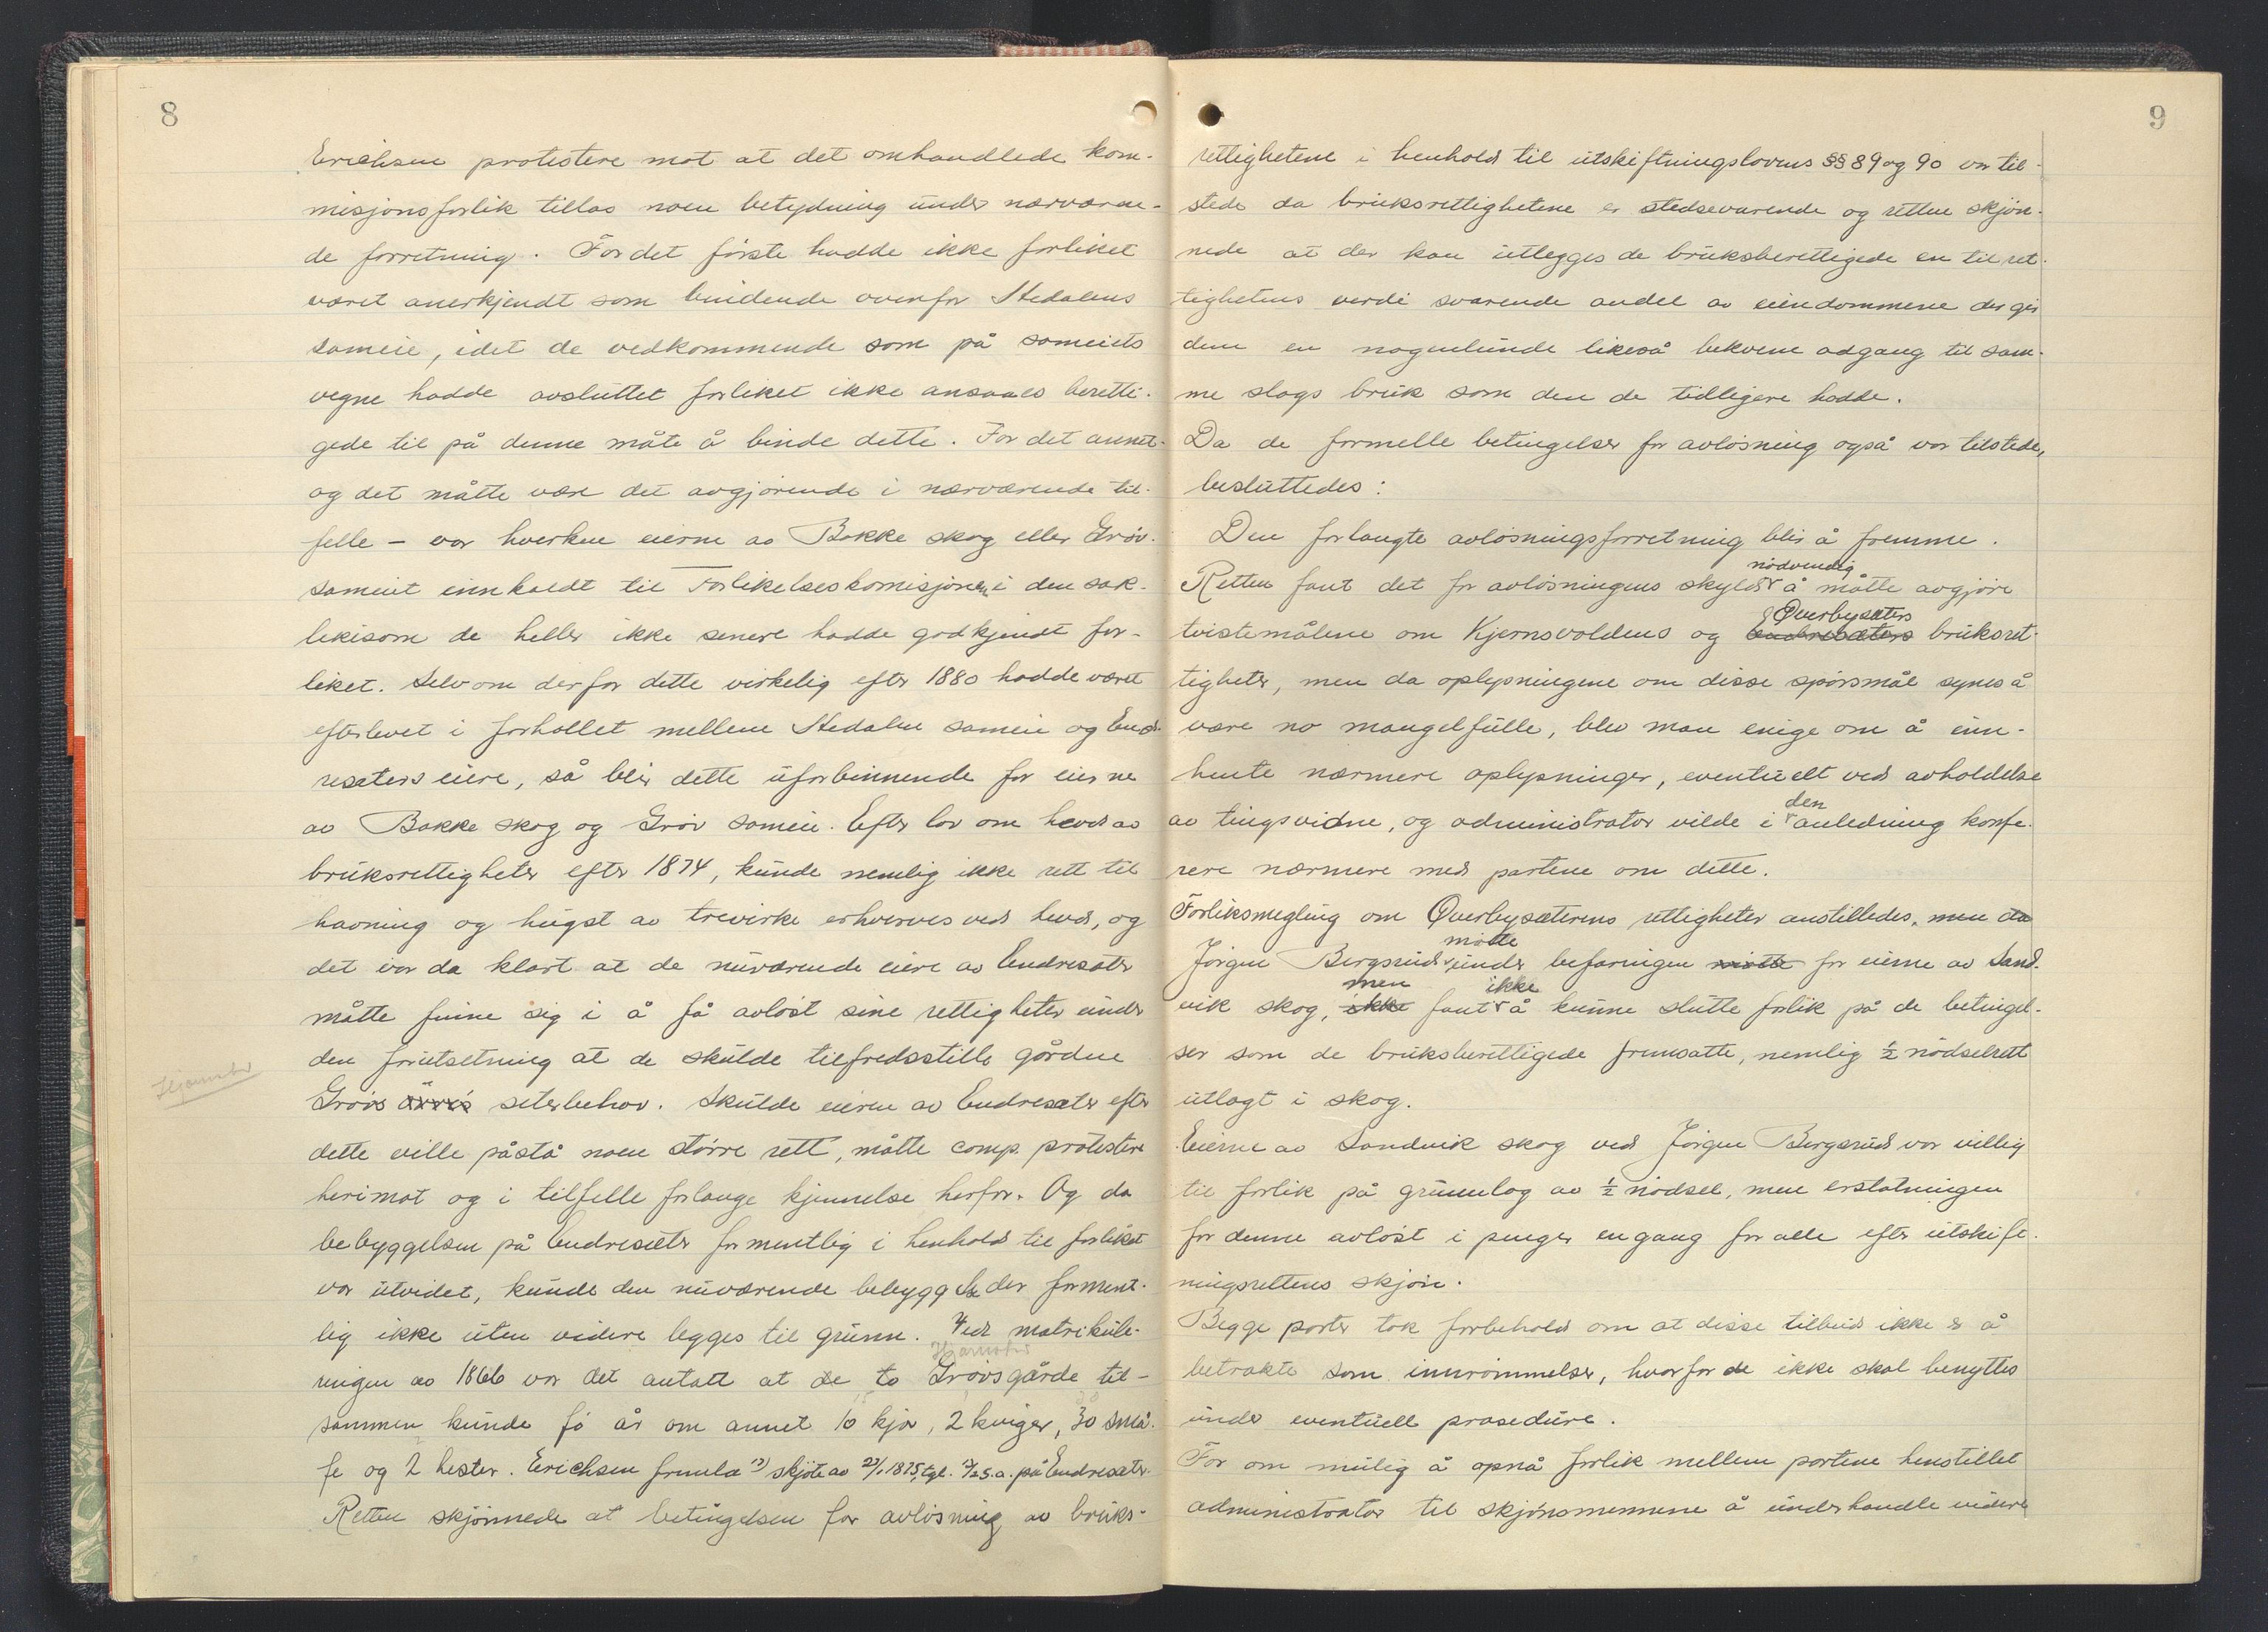 8
Erichsen protestere mot at det omhandlede kom-
misjonsforlik tillas noen betydning under nærværen-
de forretning. For det første hadde ikke forliket
været anerkjendt som bindende overfor Hedalens
sameie, idet de vedkommende som på sameiets
vegne hadde avsluttet forliket ikke ansaaes beretti-
gede til på denne måte å binde dette. For det annet-
og det måtte være det avgjørende i nærværende til-
felle - var hverken eierne av Bakke skog eller Grøv-
sameiet innkaldt til Forlikelseskomisjonen i den sak.
likesom de heller ikke senere hadde godkjendt for-
liket. Selv om derfor dette virkelig efter 1880 hadde været
efterlevet i forhollet mellem Hedalen sameie og End-
resæters eiere, så blir dette uforbinnende for eierne
av Bakke skog og Grøv sameie. Efter lov om hevd av
bruksrettigheter efter 1874, kunde nemlig ikke rett til
havning og hugst av trevirke erhverves ved hevd, og
det var da klart at de nuværende eiere av Endresæter
måtte finne sig i å få avløst sine rettigheter under
den forutsetning at de skulde tilfredsstille gårdene
Hjamstad
Grøvs seterbehov. Skulde eierne av Endresæter efter
dette ville påstå noen større rett, måtte comp. protestere
herimot og i tilfelle forlange kjennelse herfor. Og da
bebyggelsen på Endresæter formentlig i henhold til forliket
var utvidet, kunde den nuværende bebyggelse der forment-
lig ikke uten videre legges til grunn. Ved matrikule-
ringen av 1866 var det antatt at de to Grøvsgårde til-
sammen kunde fø år om annet 10 kjør, 2 kviger, 30 små-
fe og 2 hester. Erichsen fremla skjøte av 23/1 1875, tgl. s.a. på Endresæter.
Retten skjønnede at betingelsen for avløsning av bruks-
9
rettighetene i henhold til utskiftningslovens §§ 89 og 90 var til-
stede da bruksrettighetene er stedsevarende og retten skjøn-
nede at der kan utlegges de bruksberettigede en til ret-
tighetens verdi svarende andel av eiendommene der gir
dem en nogenlunde likeså bekvem adgang til sam-
me slags bruk som den de tidligere hadde.
Da de formelle betingelser for avløsning også var tilstede,
besluttedes:
Den forlangte avløsningsforretning blir å fremme.
nødvendig
Retten fant det for avløsningens skyld å måtte avgjøre
Øverbysæters
tvistemålene om Kjernsvoldens og Endresæters bruksret-
tigheter, men da oplysningene om disse spørsmål synes å
være no mangelfulle, blev man enige om å inn-
hente nærmere oplysninger, eventuelt ved avholdelse
den
av tingsvidne, og administrator vilde i anledning konfe-
rere nærmere med partene om dette.
Forliksmegling om Øverbysæterens rettigheter anstilledes, men da
møtte
Jørgen Bergsrud under befaringen møtte for eierne av Sand-
men ikke
vik skog, ikke fant å kunne slutte forlik på de betingel-
ser som de bruksberettigede fremsatte, nemlig ½ nødselrett
utlagt i skog.
Eierne av Sandvik skog ved Jørgen Bergsrud var villig
til forlik på grunnlag av ½ nødsel, men erstatningen
for denne avløst i penger engang for alle efter utskift-
ningsrettens skjøn.
Begge parter tok forbehold om at disse tilbud ikke er å
betrakte som innrømmelser, hvorfor de ikke skal benyttes
under eventuell prosedure.
For om mulig å opnå forlik mellem partene henstillet
administrator til skjønsmennene å underhandle videre